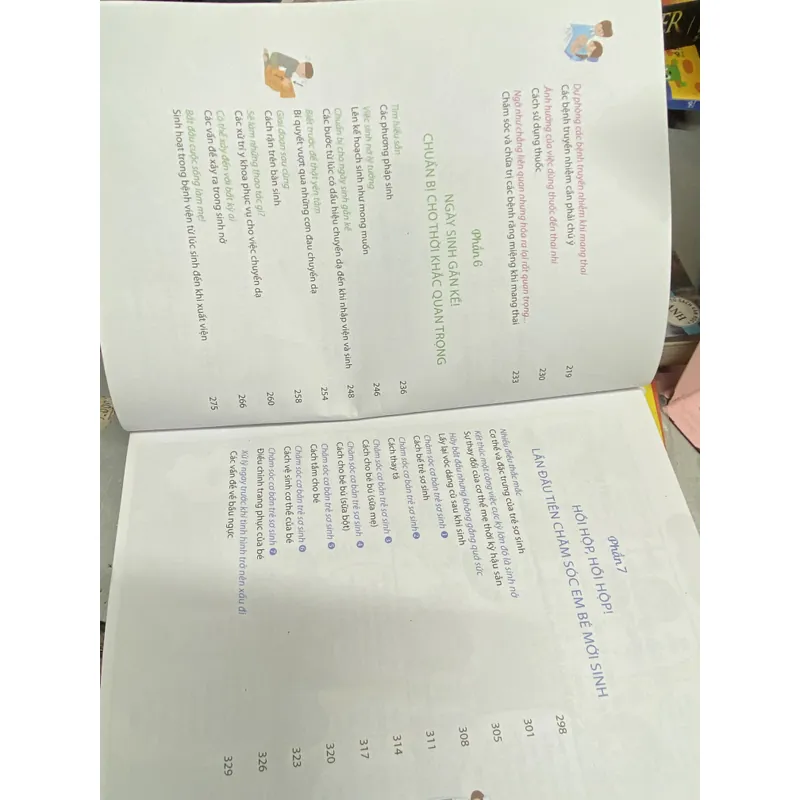 Dự phòng các bệnh truyền nhiễm khi mang thai
Các bệnh truyền nhiễm cần phải chú ý 219
Ảnh hưởng của việc dùng thuốc đến thai nhi
Cách sử dụng thuốc 230
Ngỡ như chẳng liên quan nhưng hóa ra lại rất quan trọng...
Chăm sóc và chữa trị các bệnh răng miệng khi mang thai 233
Phần 6
NGÀY SINH GẦN KỀ!
CHUẨN BỊ CHO THỜI KHẮC QUAN TRỌNG
Tìm hiểu sẵn
Các phương pháp sinh 236
Việc sinh nở lý tưởng
Lên kế hoạch sinh như mong muốn 246
Chuẩn bị cho ngày sinh gần kề
Các bước từ lúc có dấu hiệu chuyển dạ đến khi nhập viện và sinh 248
Biết trước để thật yên tâm
Bí quyết vượt qua những cơn đau chuyển dạ 254
Giai đoạn sau cùng
Cách rặn trên bàn sinh 258
Sẽ làm những thao tác gì?
Các xử trí y khoa phục vụ cho việc chuyển dạ 260
Có thể xảy đến với bất kỳ ai
Các vấn đề xảy ra trong sinh nở 266
Bắt đầu cuộc sống làm mẹ!
Sinh hoạt trong bệnh viện từ lúc sinh đến khi xuất viện 275
Phần 7
HỒI HỘP, HỒI HỘP!
LẦN ĐẦU TIÊN CHĂM SÓC EM BÉ MỚI SINH
Nhiều điều thắc mắc
Cơ thể và đặc trưng của trẻ sơ sinh 298
Kết thúc một công việc cực kỳ lớn đó là sinh nở
Sự thay đổi của cơ thể mẹ thời kỳ hậu sản 301
Hãy bắt đầu nhưng không gắng quá sức
Lấy lại vóc dáng cũ sau khi sinh 305
Chăm sóc cơ bản trẻ sơ sinh ❶
Cách bế trẻ sơ sinh 308
Chăm sóc cơ bản trẻ sơ sinh ❷
Cách thay tã 311
Chăm sóc cơ bản trẻ sơ sinh ❸
Cách cho bé bú (sữa mẹ) 314
Chăm sóc cơ bản trẻ sơ sinh ❹
Cách cho bé bú (sữa bột) 317
Chăm sóc cơ bản trẻ sơ sinh ❺
Cách tắm cho bé 320
Chăm sóc cơ bản trẻ sơ sinh ❻
Cách vệ sinh cơ thể của bé 323
Chăm sóc cơ bản trẻ sơ sinh ❼
Điều chỉnh trang phục của bé 326
Xử lý ngay trước khi tình hình trở nên xấu đi
Các vấn đề về bầu ngực 329